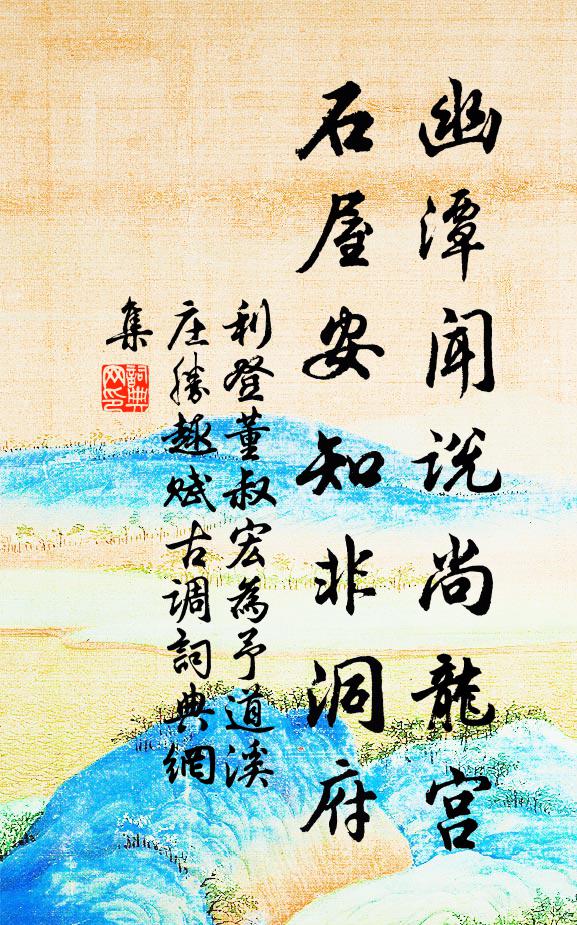 幽潭闻说尚龍宫
石屋安知非洞府
利登董叔宏為予道溪
庄勝趣赋古调詞典網
集
詞典
网印